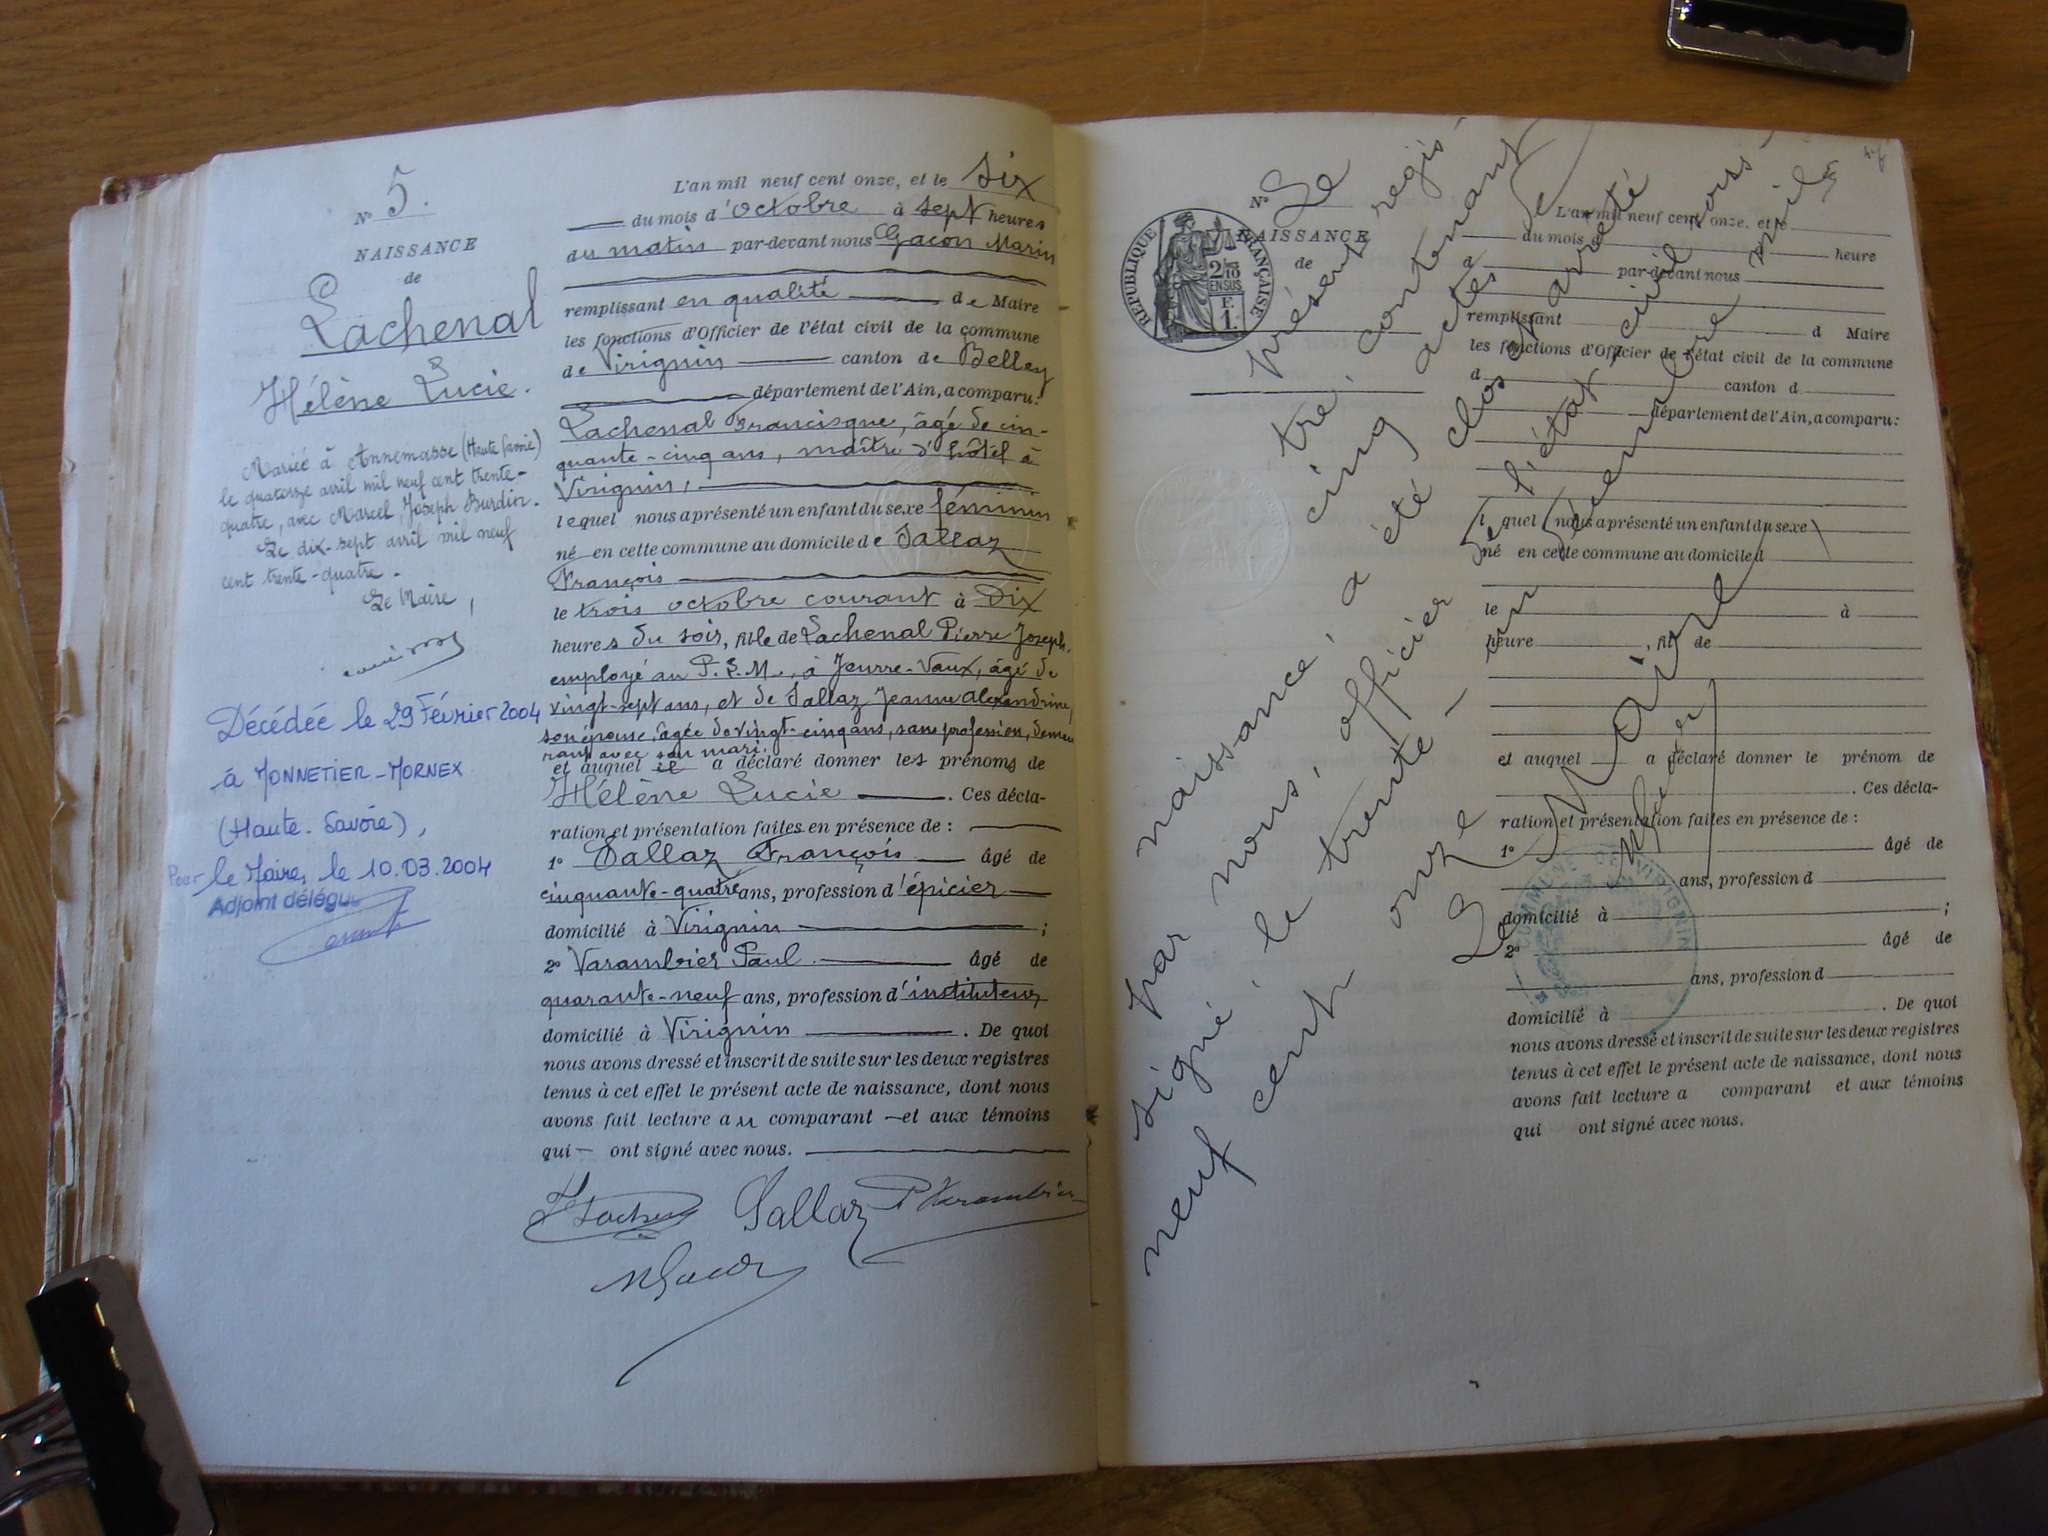 N° 5.
NAISSANCE
de
Lachenal
Hélène Lucie.
Mariée à Annemasse (Haute Savoie)
le quatorze avril mil neuf cent trente-
quatre, avec Marcel, Joseph Burdin.
Le dix-sept avril mil neuf
cent trente-quatre.
Le Maire,
Décédée le 29 Février 2004
à MONNETIER-MORNEX
(Haute-Savoie),
Pour le Maire, le 10.03.2004
Adjoint délégué
L'an mil neuf cent onze, et le six
du mois d'octobre à sept heures
du matin par-devant nous Gacon Marin
remplissant en qualité de Maire
les fonctions d'Officier de l'état civil de la commune
de Virignin canton de Belley
département de l'Ain, a comparu:
Lachenal Francisque, âgé de cin-
quante-cinq ans, maître d'hôtel à
Virignin,
lequel nous a présenté un enfant du sexe féminin
né en cette commune au domicile de Sallaz
François
le trois octobre courant à dix
heures du soir, fille de Lachenal Pierre Joseph,
employé au P.L.M., à Jeurre-Vaux, âgé de
vingt-sept ans, et de Sallaz Jeanne Alexandrine,
son épouse, âgée de vingt-cinq ans, sans profession, demeu
rant avec son mari.
et auquel il a déclaré donner les prénoms de
Hélène Lucie. Ces décla-
ration et présentation faites en présence de :
1° Sallaz François âgé de
cinquante-quatre ans, profession d'épicier
domicilié à Virignin ;
2° Varambier Paul. âgé de
quarante-neuf ans, profession d'instituteur
domicilié à Virignin. De quoi
nous avons dressé et inscrit de suite sur les deux registres
tenus à cet effet le présent acte de naissance, dont nous
avons fait lecture au comparant et aux témoins
qui ont signé avec nous.
Sallaz P Varambier
MGacon
N°
NAISSANCE
de
RÉPUBLIQUE FRANÇAISE
2/10
EN SUS
F.
1.
L'an mil neuf cent onze, et le
du mois d heure
d par-devant nous
remplissant d Maire
les fonctions d'Officier de l'état civil de la commune
d canton d
département de l'Ain, a comparu:
l quel nous a présenté un enfant du sexe
né en cette commune au domicile d
le à
heure , fil de
et auquel a déclaré donner le prénom de
. Ces décla-
ration et présentation faites en présence de :
1° âgé de
ans, profession d
domicilié à ;
2° âgé de
ans, profession d
domicilié à . De quoi
nous avons dressé et inscrit de suite sur les deux registres
tenus à cet effet le présent acte de naissance, dont nous
avons fait lecture a comparant et aux témoins
qui ont signé avec nous.
Le présent regis-
tre, contenant
cinq actes de
naissance, a été clos et arrêté
par nous, officier de l'état-civil sous-
signé, le trente-un décembre mil
neuf cent onze
Le Maire
COMMUNE DE VIRIGNIN